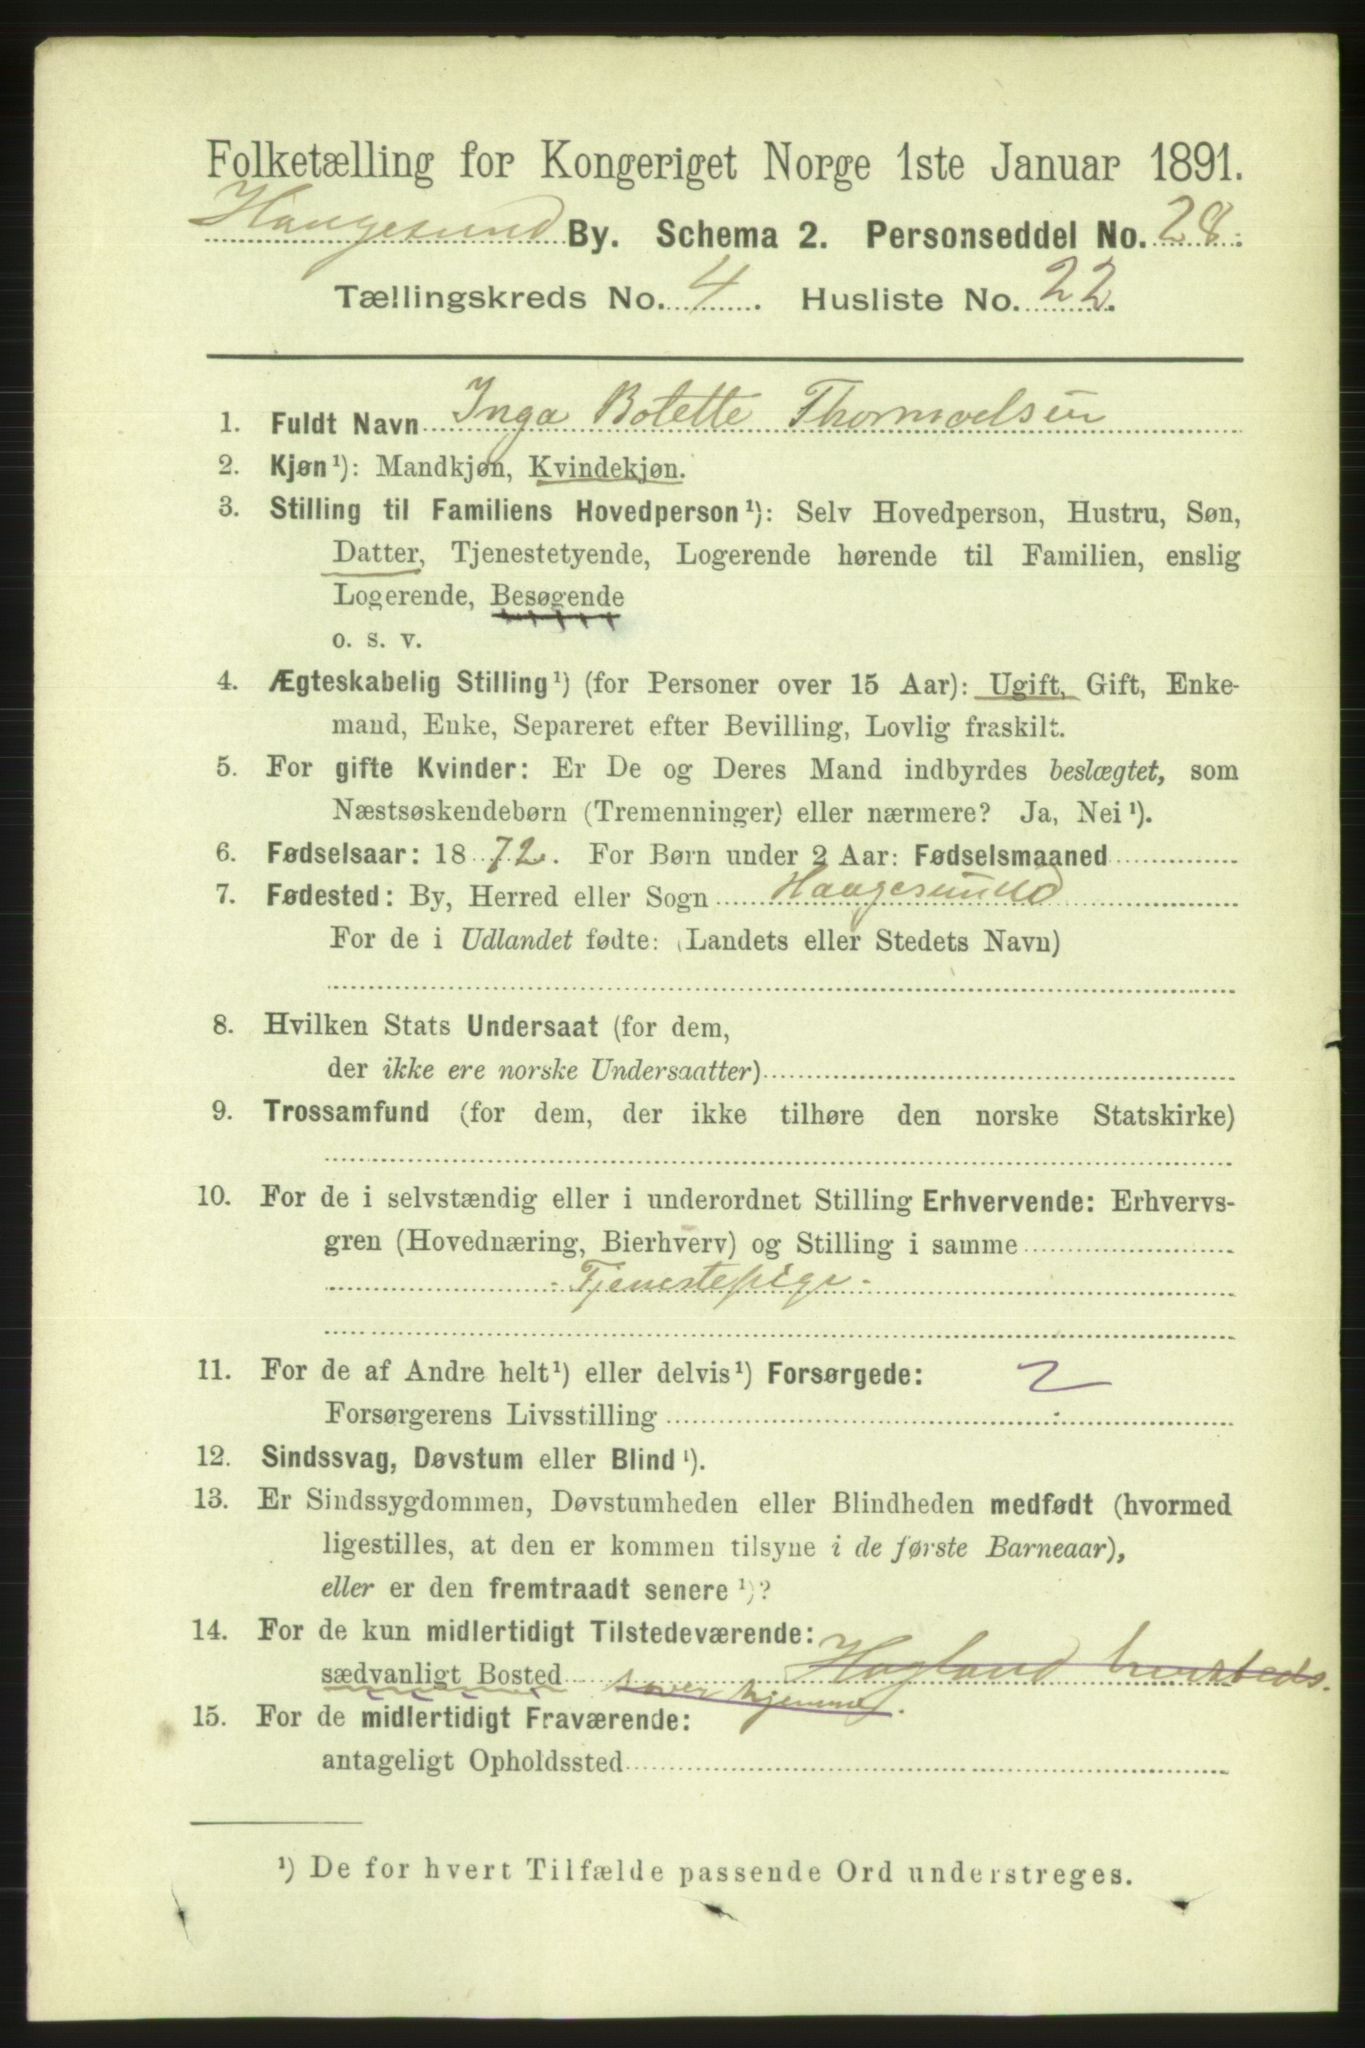 Folketælling for Kongeriget Norge 1ste Januar 1891.
Haugesund By. Schema 2. Personseddel No. 28.
Tællingskreds No. 4. Husliste No. 22.
1. Fuldt Navn Inga Bolette Thormodsen
2. Kjøn¹): Mandkjøn, Kvindekjøn.
3. Stilling til Familiens Hovedperson¹): Selv Hovedperson, Hustru, Søn,
Datter, Tjenestetyende, Logerende hørende til Familien, enslig
Logerende, Besøgende
o. s. v.
4. Ægteskabelig Stilling¹) (for Personer over 15 Aar): Ugift, Gift, Enke-
mand, Enke, Separeret efter Bevilling, Lovlig fraskilt.
5. For gifte Kvinder: Er De og Deres Mand indbyrdes beslægtet, som
Næstsøskendebørn (Tremenninger) eller nærmere? Ja, Nei¹).
6. Fødselsaar: 1872. For Børn under 2 Aar: Fødselsmaaned
7. Fødested: By, Herred eller Sogn Haugesund
For de i Udlandet fødte: (Landets eller Stedets Navn)
8. Hvilken Stats Undersaat (for dem,
der ikke ere norske Undersaatter)
9. Trossamfund (for dem, der ikke tilhøre den norske Statskirke)
10. For de i selvstændig eller i underordnet Stilling Erhvervende: Erhvervs-
gren (Hovednæring, Bierhverv) og Stilling i samme
- Tjenestepige -
11. For de af Andre helt¹) eller delvis¹) Forsørgede: 2
Forsørgerens Livsstilling
12. Sindssvag, Døvstum eller Blind¹).
13. Er Sindssygdommen, Døvstumheden eller Blindheden medfødt (hvormed
ligestilles, at den er kommen tilsyne i de første Barneaar),
eller er den fremtraadt senere¹)?
14. For de kun midlertidigt Tilstedeværende:
sædvanligt Bosted Hagland
sover hjemme.
15. For de midlertidigt Fraværende:
antageligt Opholdssted
¹) De for hvert Tilfælde passende Ord understreges.